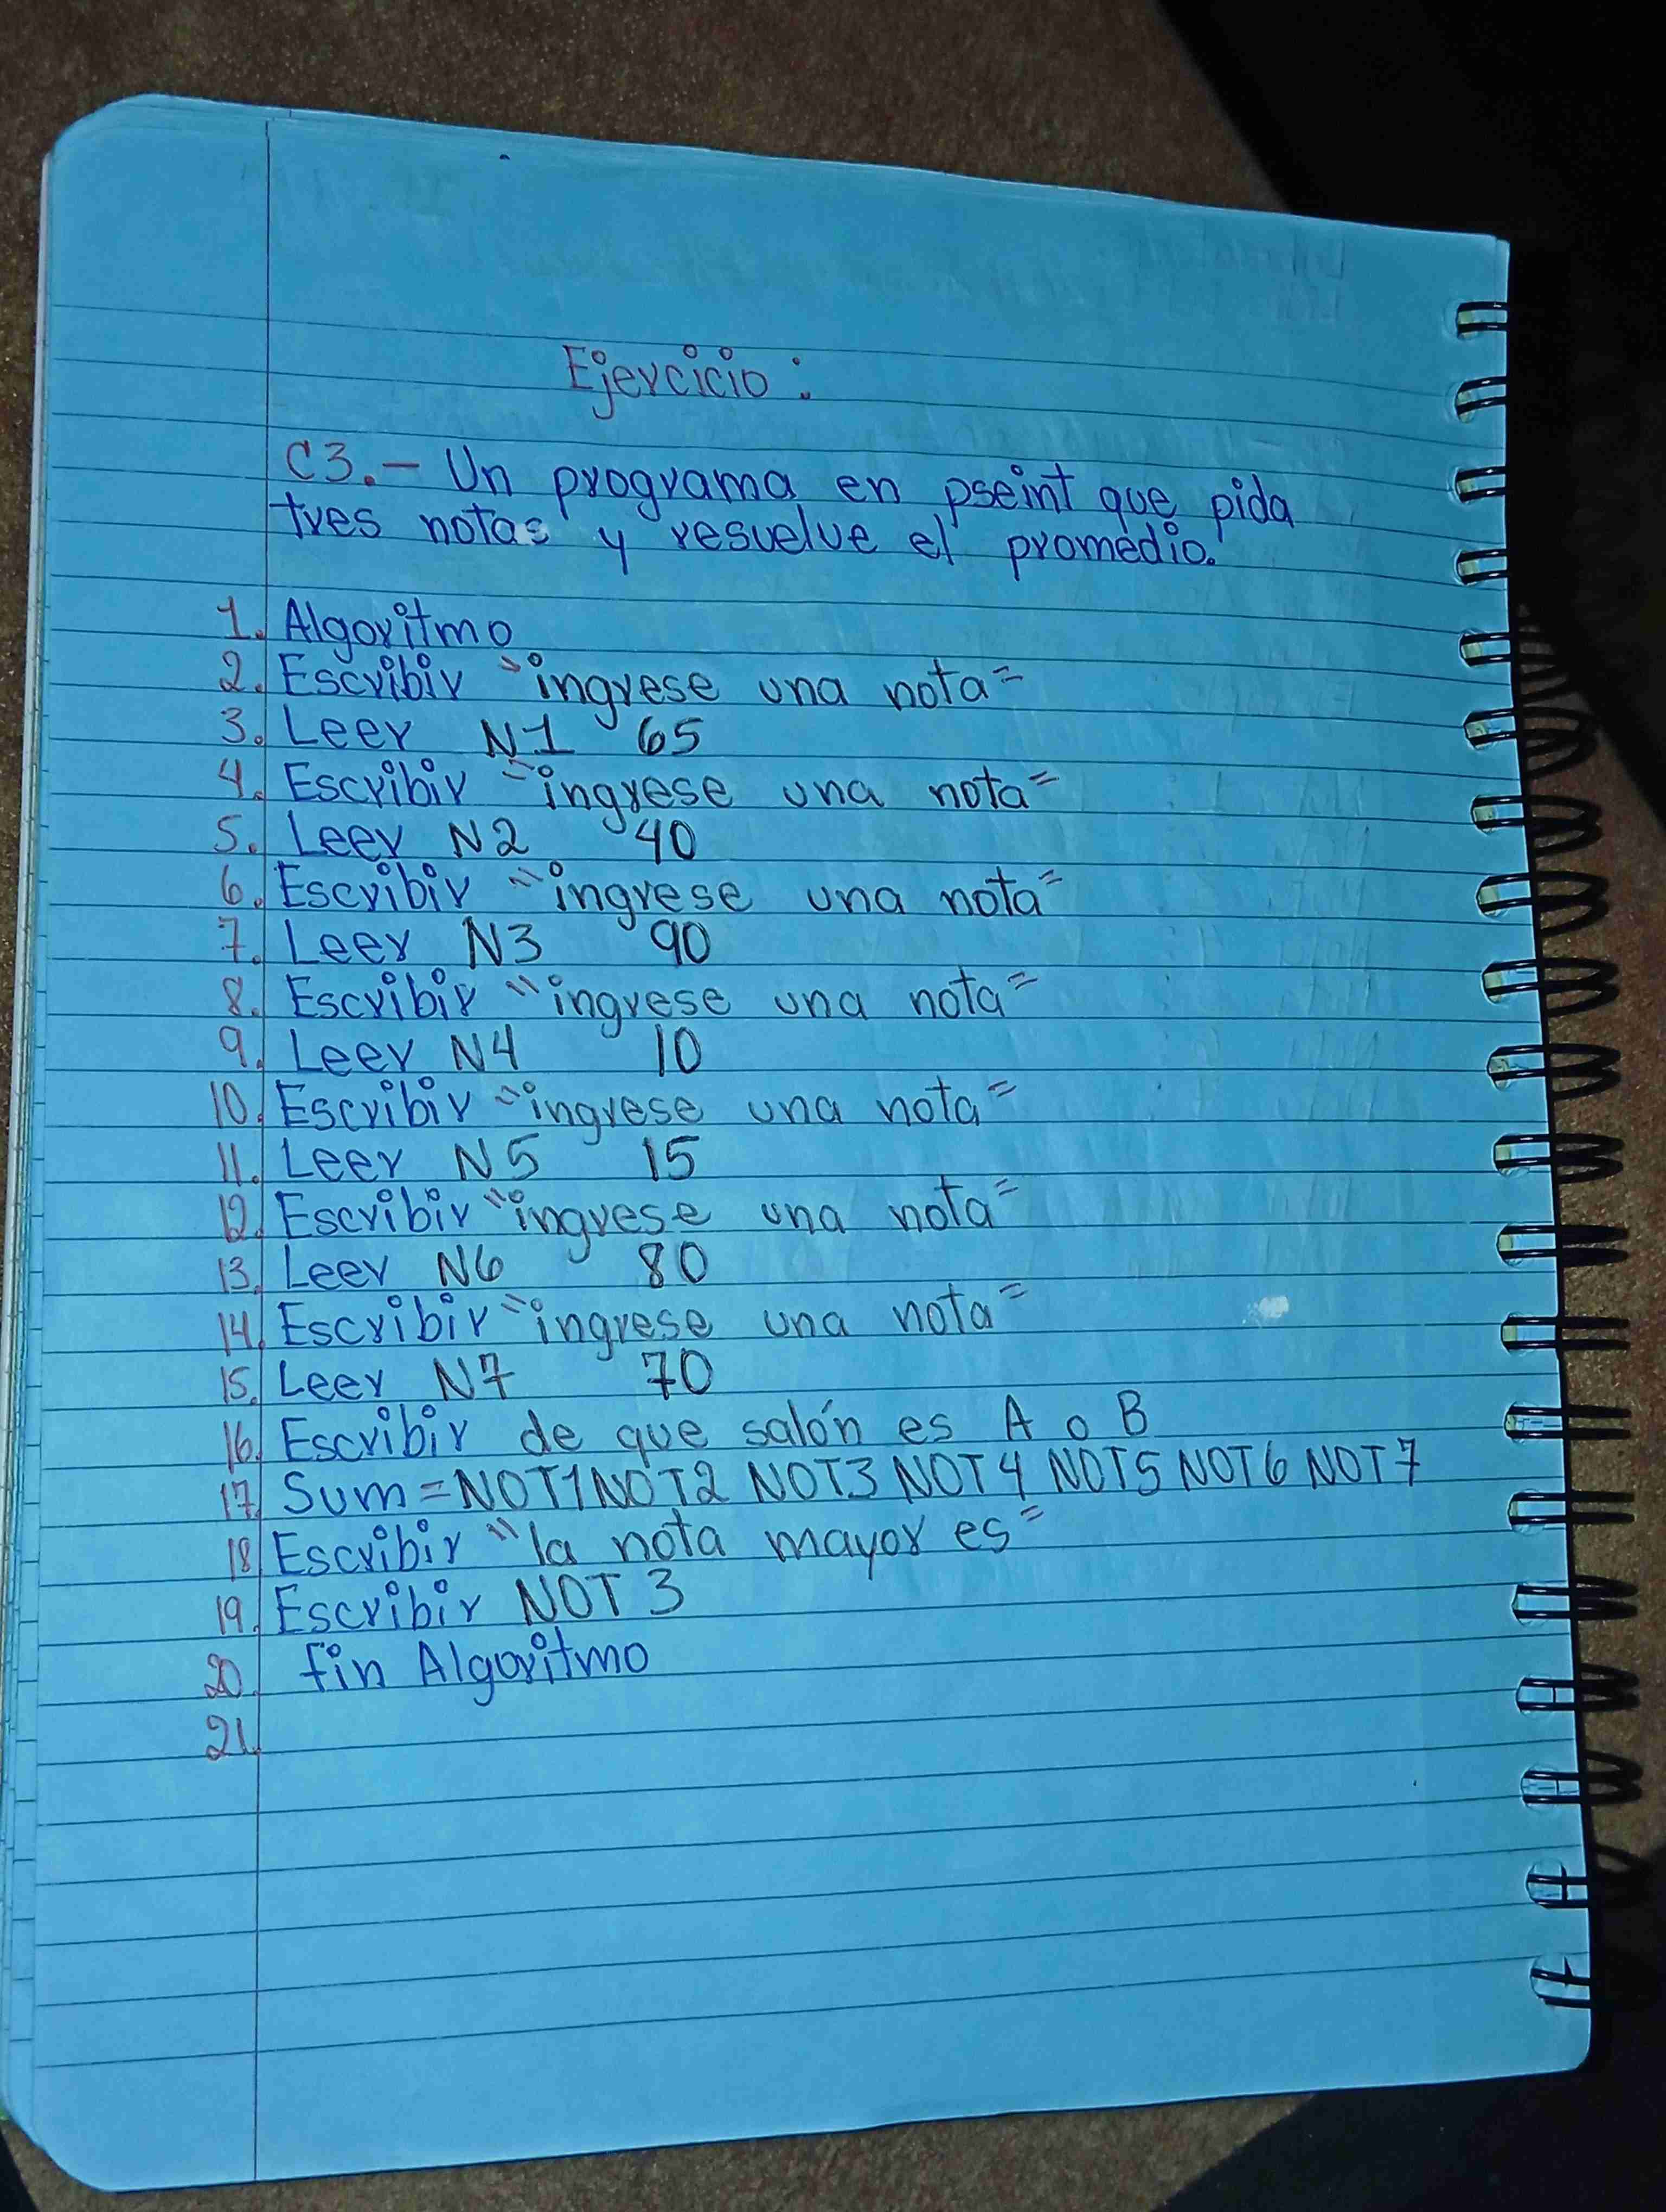 Ejercicio:
C3.- Un programa en pseint que pida
tres notas y resuelve el promedio.
1. Algoritmo
2. Escribir "ingrese una nota"
3. Leer N1 65
4. Escribir "ingrese una nota"
5. Leer N2 40
6. Escribir "ingrese una nota"
7. Leer N3 90
8. Escribir "ingrese una nota"
9. Leer N4 10
10. Escribir "ingrese una nota"
11. Leer N5 15
12. Escribir "ingrese una nota"
13. Leer N6 80
14. Escribir "ingrese una nota"
15. Leer N7 70
16. Escribir de que salón es A o B
17. Sum=NOT1NOT2 NOT3 NOT4 NOT5 NOT6 NOT7
18. Escribir "la nota mayor es"
19. Escribir NOT 3
20. fin Algoritmo
21.